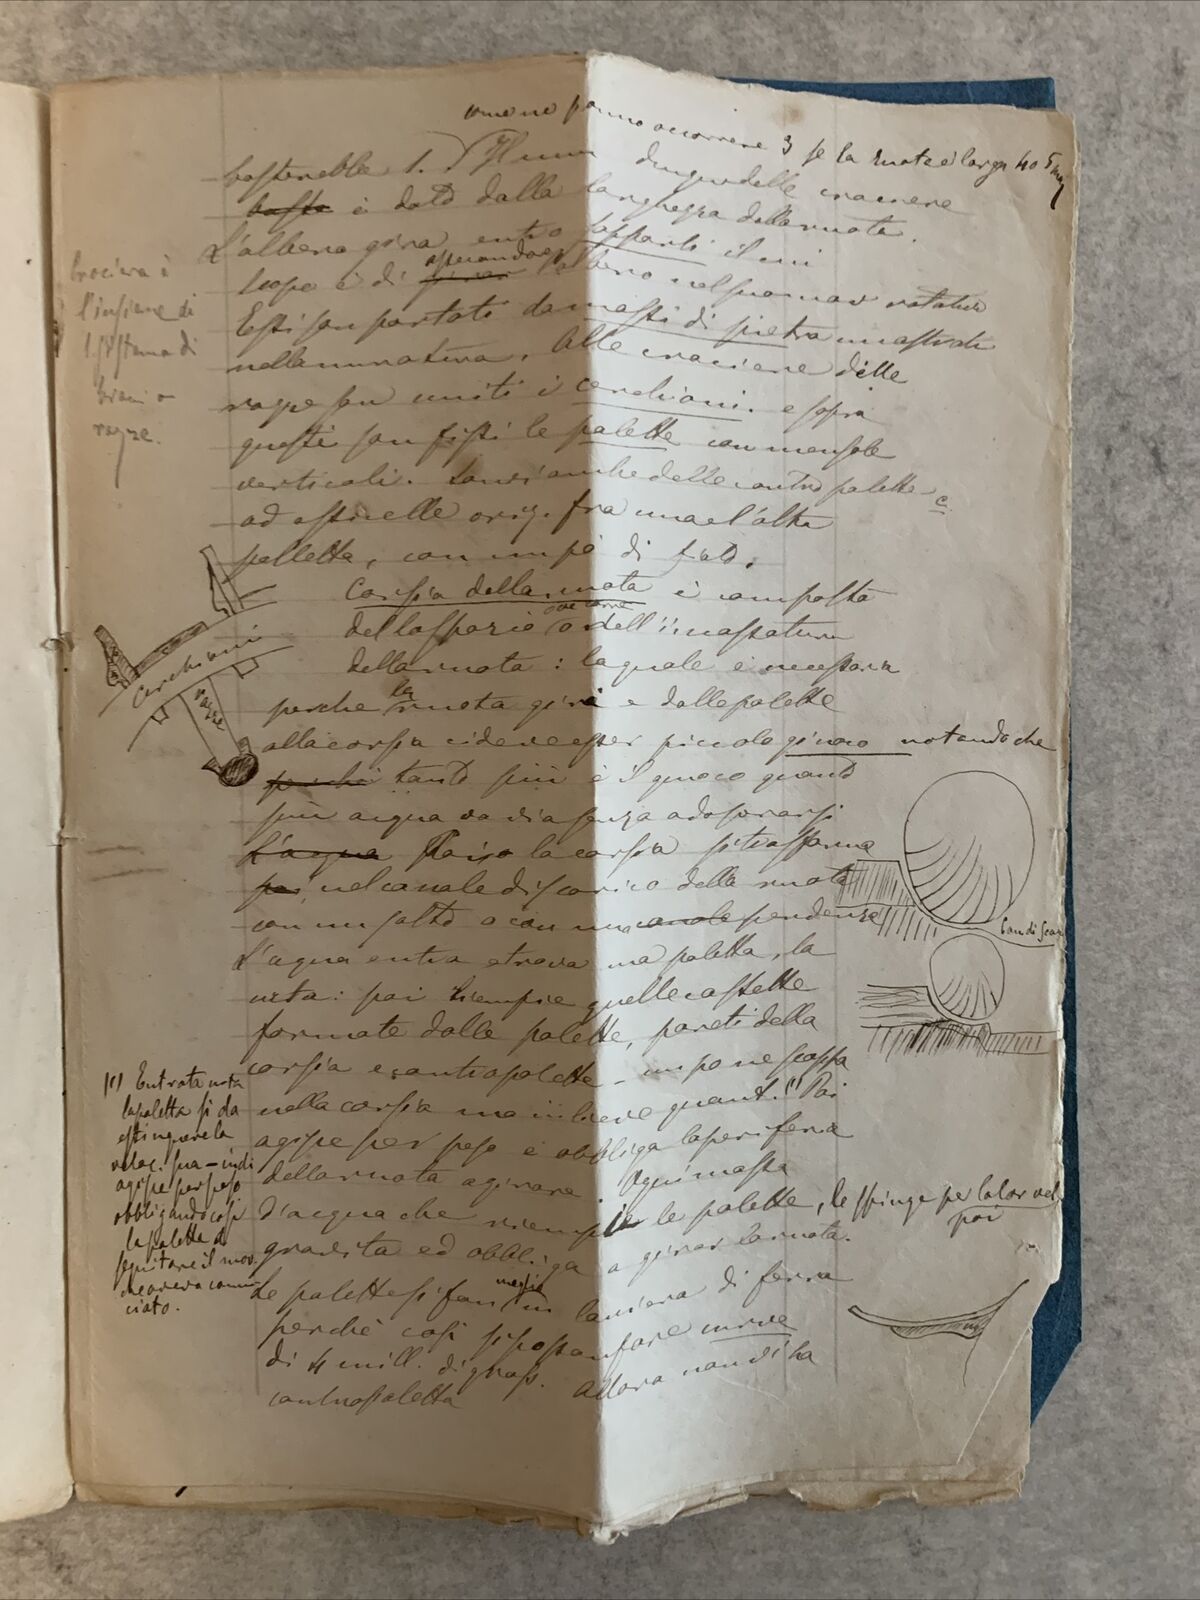 come ne possono occorrere 3 se la ruota è larga 4 o 5 m
basterebbe 1. Il num dunque delle crociere
basta è dato dalla larghezza della ruota.
L'albero gira entro supporti il cui
scopo è di girar assicurando l'albero nel suo mov rotatorio
Essi son portati da massi di pietra incastrati
nella muratura. Alle crociere delle
razze son uniti i cerchioni. e sopra
questi son fissi le palette con mensole
verticali. Sonvi anche delle contro palette c
ad asticelle oriz. fra una e l'altra
palletta, con un pò di fiato.
Corsia della ruota è composta
dello spazio ove corre o dell'incassatura
della ruota: la quale è necessaria
perchè la ruota giri e dalle palette
alla corsia vi deve esser piccolo giuoco notando che
perchè tanto più è il giuoco quanto
più acqua va via senza adoperarsi
L'acqua la corsia si trasforma
poi nel canale di scarico della ruota
con un salto o con una canale pendenza
L'acqua entra e trova una paletta, la
urta: poi riempie quelle cassette
formate dalle palette, pareti della
corsia e contropalette - un po ne scappa
nella corsia ma in lieve quant. (1) Poi
agisce per peso e obbliga la periferia
della ruota a girare. Ogni massa
d'acqua che riempie le palette, le spinge per la lor vel
poi
gravita ed obbliga a girar la ruota.
Le palette si fan meglio in lamiera di ferro
perchè così si possan fare curve
di 4 mill. di gross. Allora non vi ha
contropaletta
Crociera è
l'insieme di
sistema di
bracci o
razze.
Cerchioni
razze
Can di Scar
(1) Entrata urta
la paletta si da
estinguere la
veloc. sua - indi
agisce per peso
obbligando così
la paletta a
seguitare il mov.
che aveva comin-
ciato.